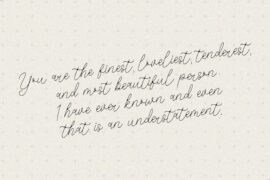 You are the finest, loveliest, tenderest,
and most beautiful person
I have ever known and even
that is an understatement.